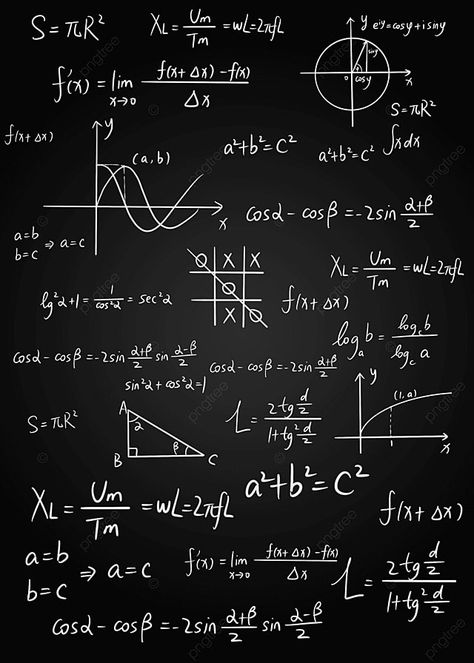 S=πR²
X_L = Um/Tm = wL=2πfL
y e^iy=cosy+isiny
siny
o cosy x
f'(x) = lim x→0 f(x+Δx)-f(x)/Δx
S=πR²
∫xdx
f(x+Δx)
y
(a,b)
x
a²+b²=C²
a²+b²=C²
cosα-cosβ=-2sin α+β/2
a=b
b=c ⇒ a=c
O X X
O
X O
X_L = Um/Tm = wL=2πfL
lg²α+1 = 1/cos²α = sec²α
f(x+Δx)
log_a b = log_c b/log_c a
cosα-cosβ=-2sin α+β/2 sin α-β/2
cosα-cosβ=-2sin α+β/2
sin²α+cos²α=1
y
(1,a)
1
x
S=πR²
A
2
B
β
C
L = 2tg d/2 / 1+tg² d/2
X_L = Um/Tm = wL=2πfL
a²+b²=C²
f(x+Δx)
a=b
b=c ⇒ a=c
f'(x) = lim x→0 f(x+Δx)-f(x)/Δx
L = 2tg d/2 / 1+tg² d/2
cosα-cosβ=-2sin α+β/2 sin α-β/2
pngtree